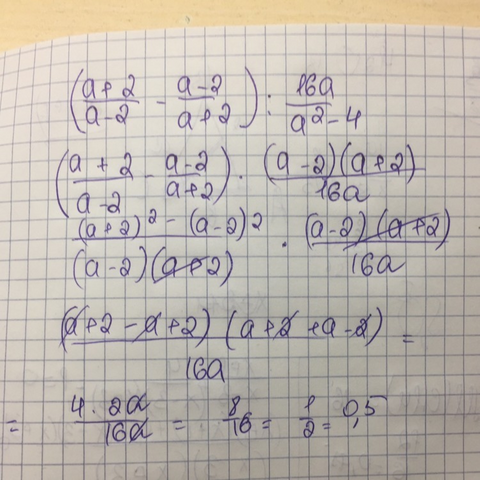 (a+2/a-2 - a-2/a+2) : 16a/a²-4
(a+2/a-2 - a-2/a+2) · (a-2)(a+2)/16a
(a+2)²-(a-2)²/(a-2)(a+2) · (a-2)(a+2)/16a
(a+2-a+2)(a+2+a-2)/16a =
= 4·2a/16a = 8/16 = 1/2 = 0,5